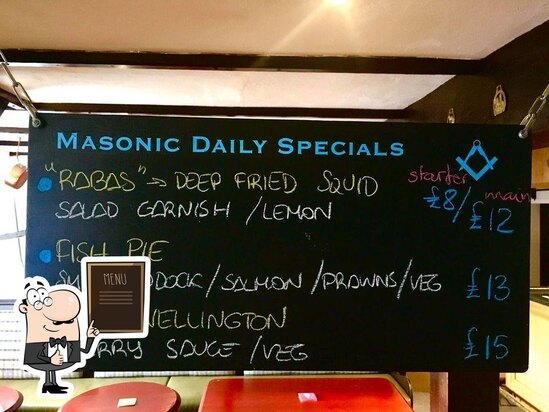 MASONIC DAILY SPECIALS
"RABAS" → DEEP FRIED SQUID
starter main
SALAD GARNISH / LEMON £8/£12
FISH PIE
DOCK/SALMON/PRAWNS/VEG £13
WELLINGTON
SAUCE /VEG £15
MENU